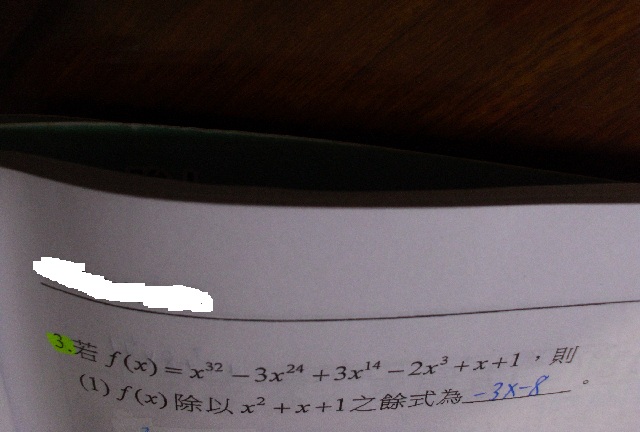 3.若 f(x) = x³² − 3x²⁴ + 3x¹⁴ − 2x³ + x + 1，則
(1) f(x) 除以 x² + x + 1 之餘式為 -3x-8 。